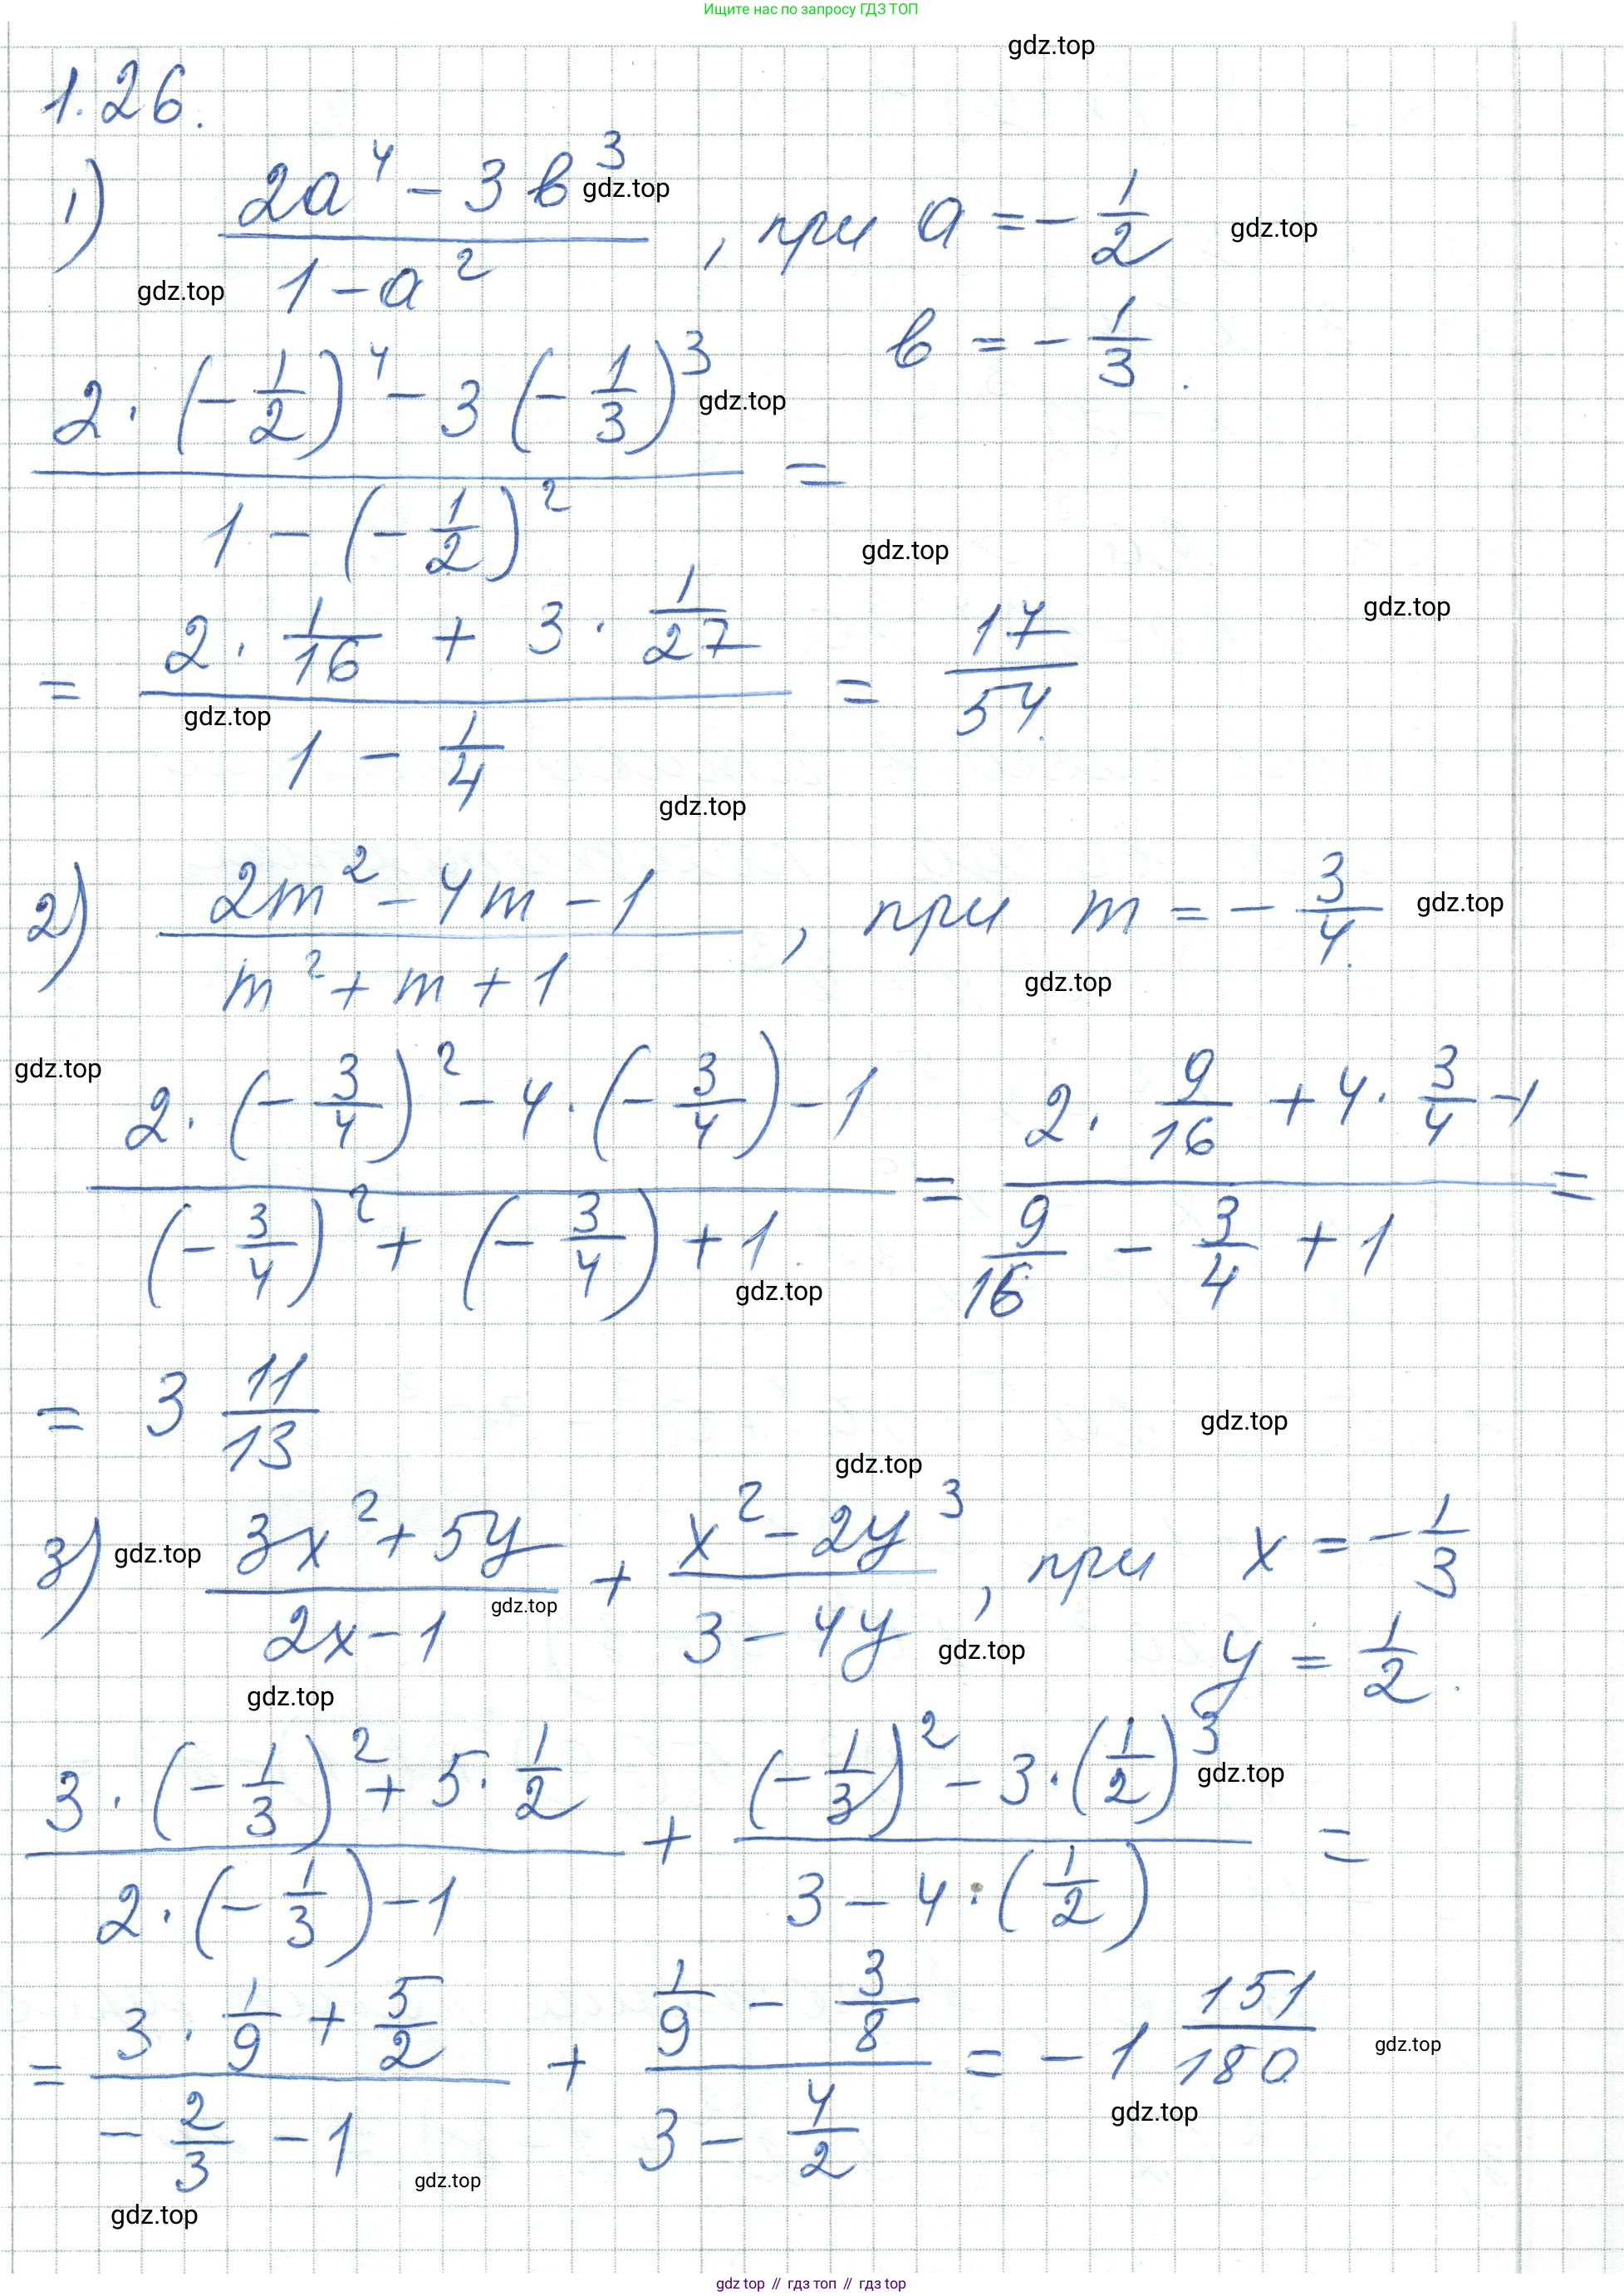 Ищите нас по запросу ГДЗ ТОП
gdz.top
1.26.
1) (2a^4 - 3b^3)/(1 - a^2), при a = -1/2
gdz.top gdz.top
gdz.top
b = -1/3.
(2·(-1/2)^4 - 3(-1/3)^3)/(1 - (-1/2)^2) =
gdz.top
gdz.top
gdz.top
= (2·1/16 + 3·1/27)/(1 - 1/4) = 17/54.
gdz.top
gdz.top
2) (2m^2 - 4m - 1)/(m^2 + m + 1), при m = -3/4.
gdz.top
gdz.top
gdz.top
(2·(-3/4)^2 - 4·(-3/4) - 1)/((-3/4)^2 + (-3/4) + 1) = (2·9/16 + 4·3/4 - 1)/(9/16 - 3/4 + 1) =
gdz.top
= 3 11/13
gdz.top
gdz.top
3) (3x^2 + 5y)/(2x - 1) + (x^2 - 2y^3)/(3 - 4y), при x = -1/3
gdz.top
gdz.top
gdz.top
y = 1/2.
gdz.top
(3·(-1/3)^2 + 5·1/2)/(2·(-1/3) - 1) + ((-1/3)^2 - 3·(1/2)^3)/(3 - 4·(1/2)) =
gdz.top
= (3·1/9 + 5/2)/(-2/3 - 1) + (1/9 - 3/8)/(3 - 4/2) = -1 151/180.
gdz.top
gdz.top
gdz.top
gdz.top
gdz top // гдз топ // gdz top